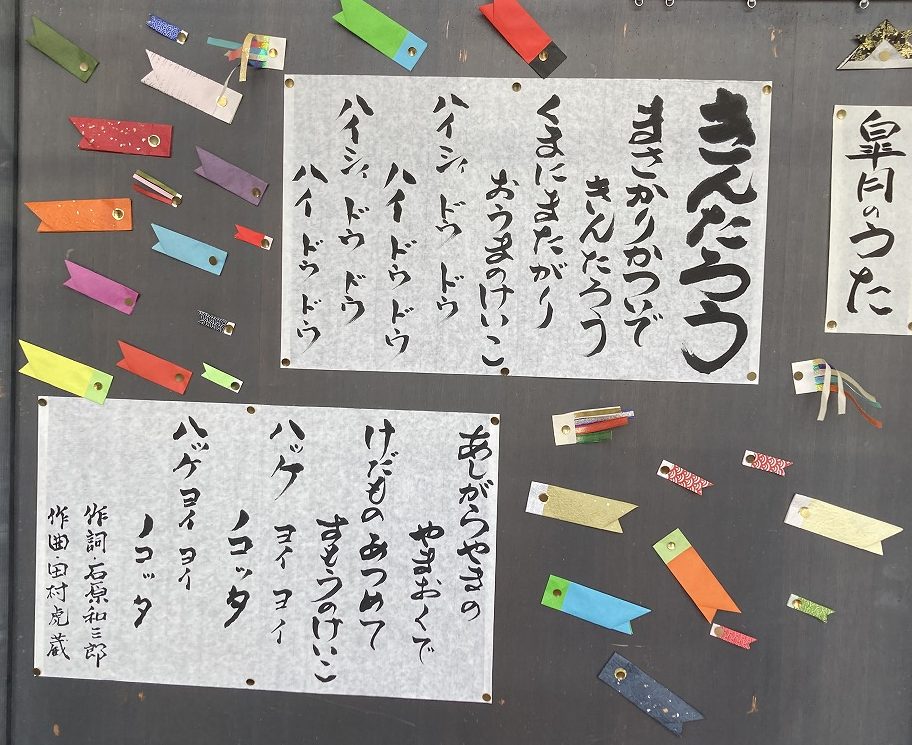 皐月のうた
きんたろう
まさかりかついで
きんたろう
くまにまたがり
おうまのけいこ
ハイシィ ドウ ドウ
ハイ ドウ ドウ
ハイシィ ドウ ドウ
ハイ ドウ ドウ
あしがらやまの
やまおくで
けだもの あつめて
すもうのけいこ
ハッケ ヨイ ヨイ
ノコッタ
ハッケ ヨイ ヨイ
ノコッタ
作詞・石原和三郎
作曲・田村虎蔵